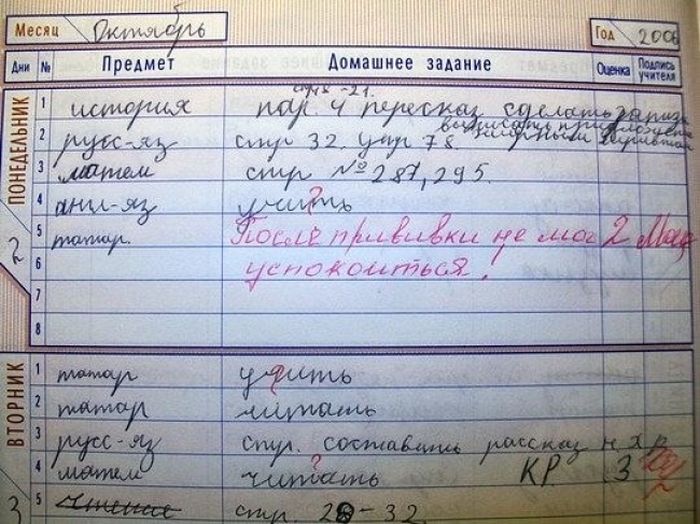 Месяц Октябрь Год 2006
Дни № Предмет Домашнее задание Оценка Подпись учителя
ПОНЕДЕЛЬНИК 2
стр -21.
1 история пар. 4 пересказ сделать
2 русс-яз стр 32. упр 78 выписать
3 матем стр № 287, 295.
4 англ-яз учить ?
5 татар. После прививки не мог 2
6 успокоиться!
7
8
ВТОРНИК 3
1 татар учить
2 татар читать
3 русс-яз стр. составить рассказ
4 матем читать ? КР 3
5 чтение стр. 28-32.